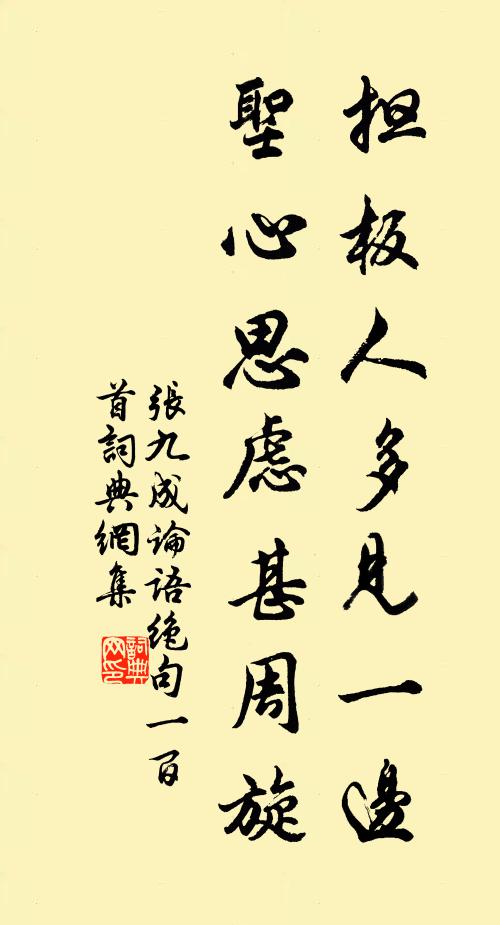 担板人多見一邊
聖心思慮甚周旋
張九成論語絕句一百
首詞典網集
詞典
网印